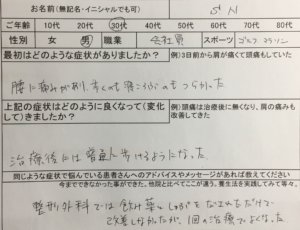 お名前(無記名・イニシャルでも可) S N
ご年齢 10代 20代 30代 40代 50代 60代 70代 80代
性別 女 男 職業 会社員 スポーツ ゴルフ、マラソン
最初はどのような症状がありましたか? 例)3日前から肩が痛くて頭痛もしていた
腰に痛みがあり、歩くのも寝ころぶのもつらかった
上記の症状はどのように良くなって(変化して)きましたか? 例)頭痛は治療後に無くなり、肩の痛みも改善してきた
治療後には普通に歩けるようになった
同じような症状で悩んでいる患者さんへのアドバイスやメッセージがあれば教えてください
今までできなかった事ができた。他院と比べてここが違う。養生法を実践してみて等々。
整形外科では飲み薬としっぷを
改善しなかったが、1回の治療でよくなった